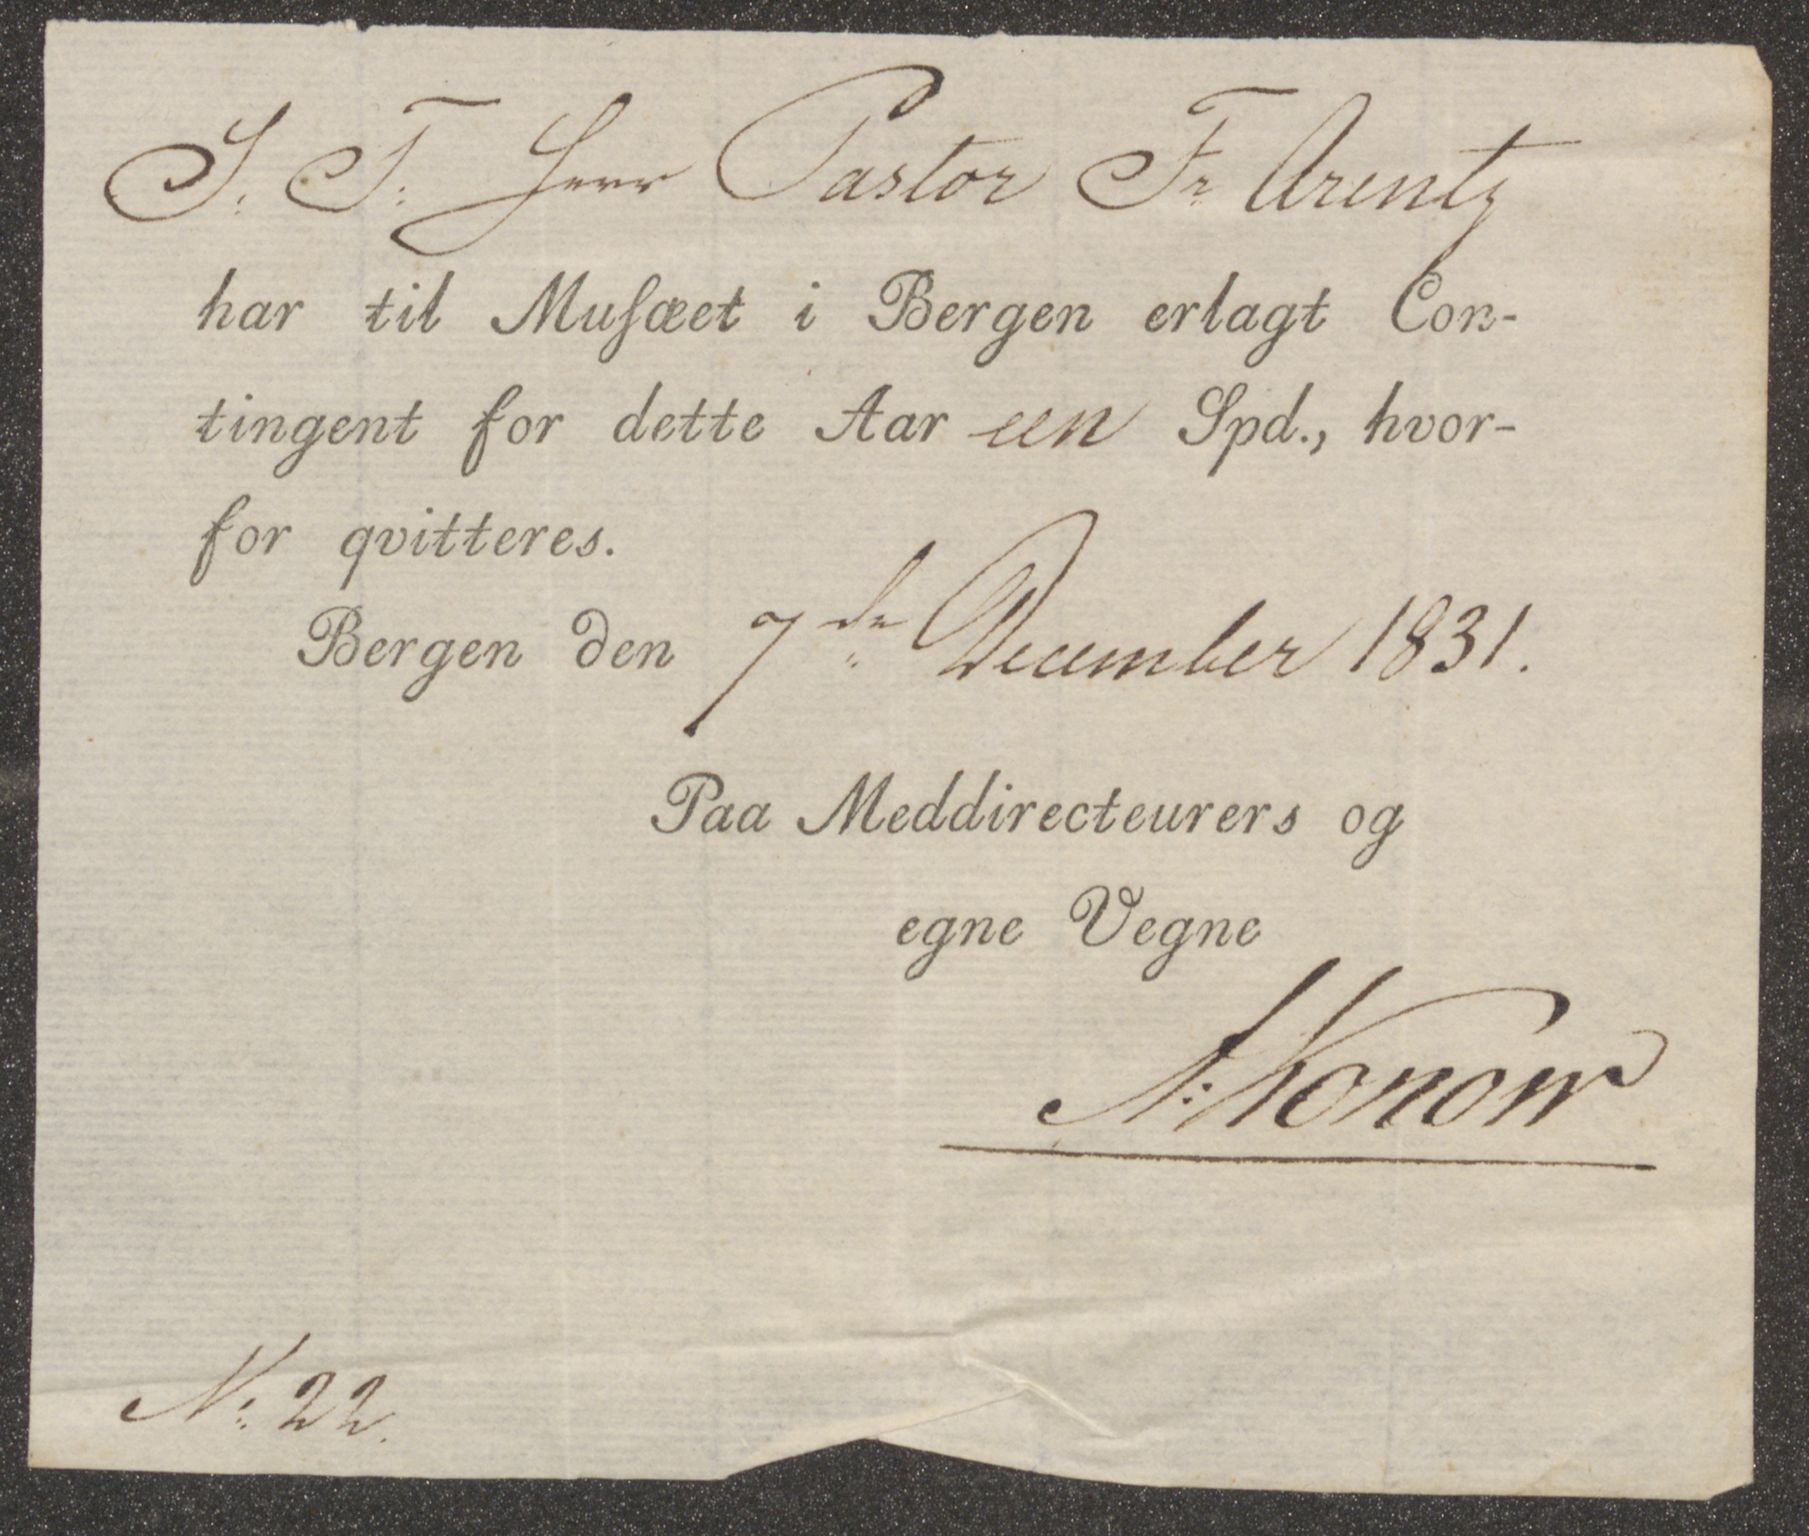 S. T. Herr Pastor Fr. Arentz
har til Muſæet i Bergen erlagt Con-
tingent for dette Aar een Spd., hvor-
for qvitteres.
Bergen den 7de December 1831.
Paa Meddirecteurers og
egne Vegne
A: Konow
N: 22.